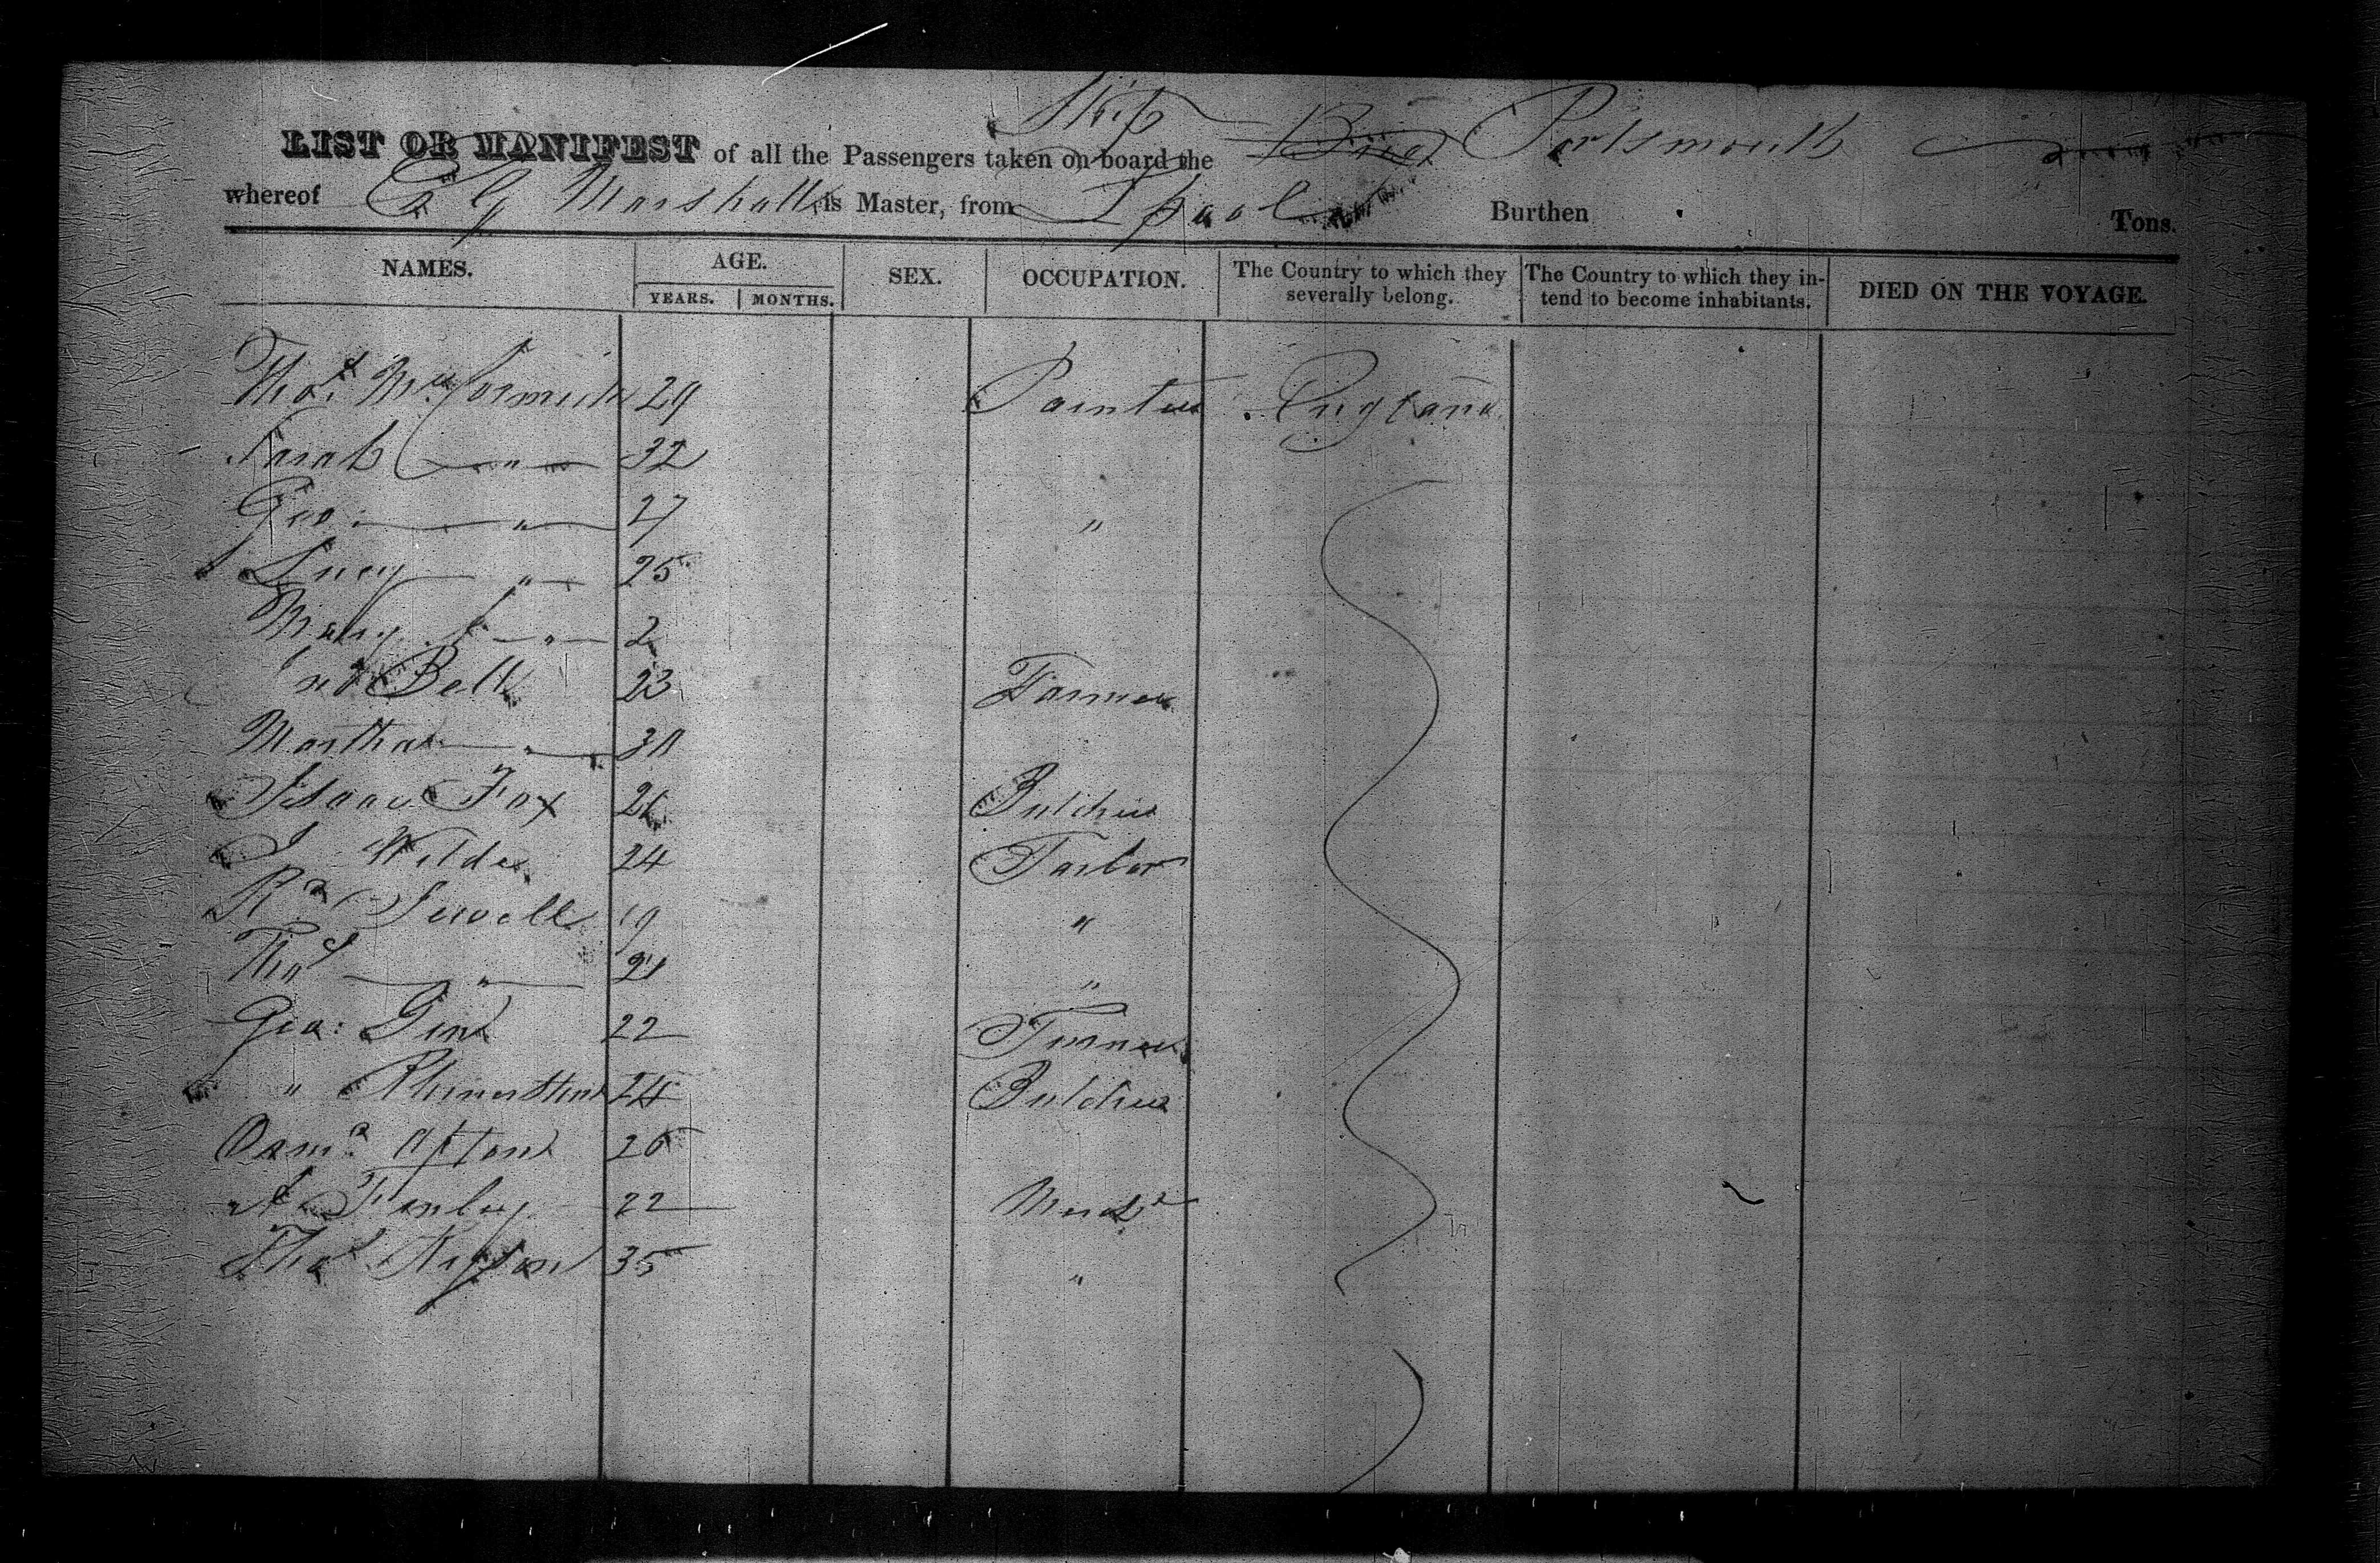 Ship
LIST OR MANIFEST of all the Passengers taken on board the Brig Portsmouth
whereof G Marshall is Master, from Lpool Burthen Tons.
NAMES. AGE. SEX. OCCUPATION. The Country to which they severally belong. The Country to which they intend to become inhabitants. DIED ON THE VOYAGE.
YEARS. MONTHS.
Thos. McCormick 29 Painter England
Sarah " 32
Geo: " 27 "
Lucy " 25
Mary " 2
Jno Bell 23 Farmer
Martha " 30
Isaac Fox 26 Butcher
J Wilde 24 Tailor
Rd Sewell 19 "
Thos " 21 "
Geo: 22 Turner
" 24 Butcher
26
Finley 22
Thos 35 "